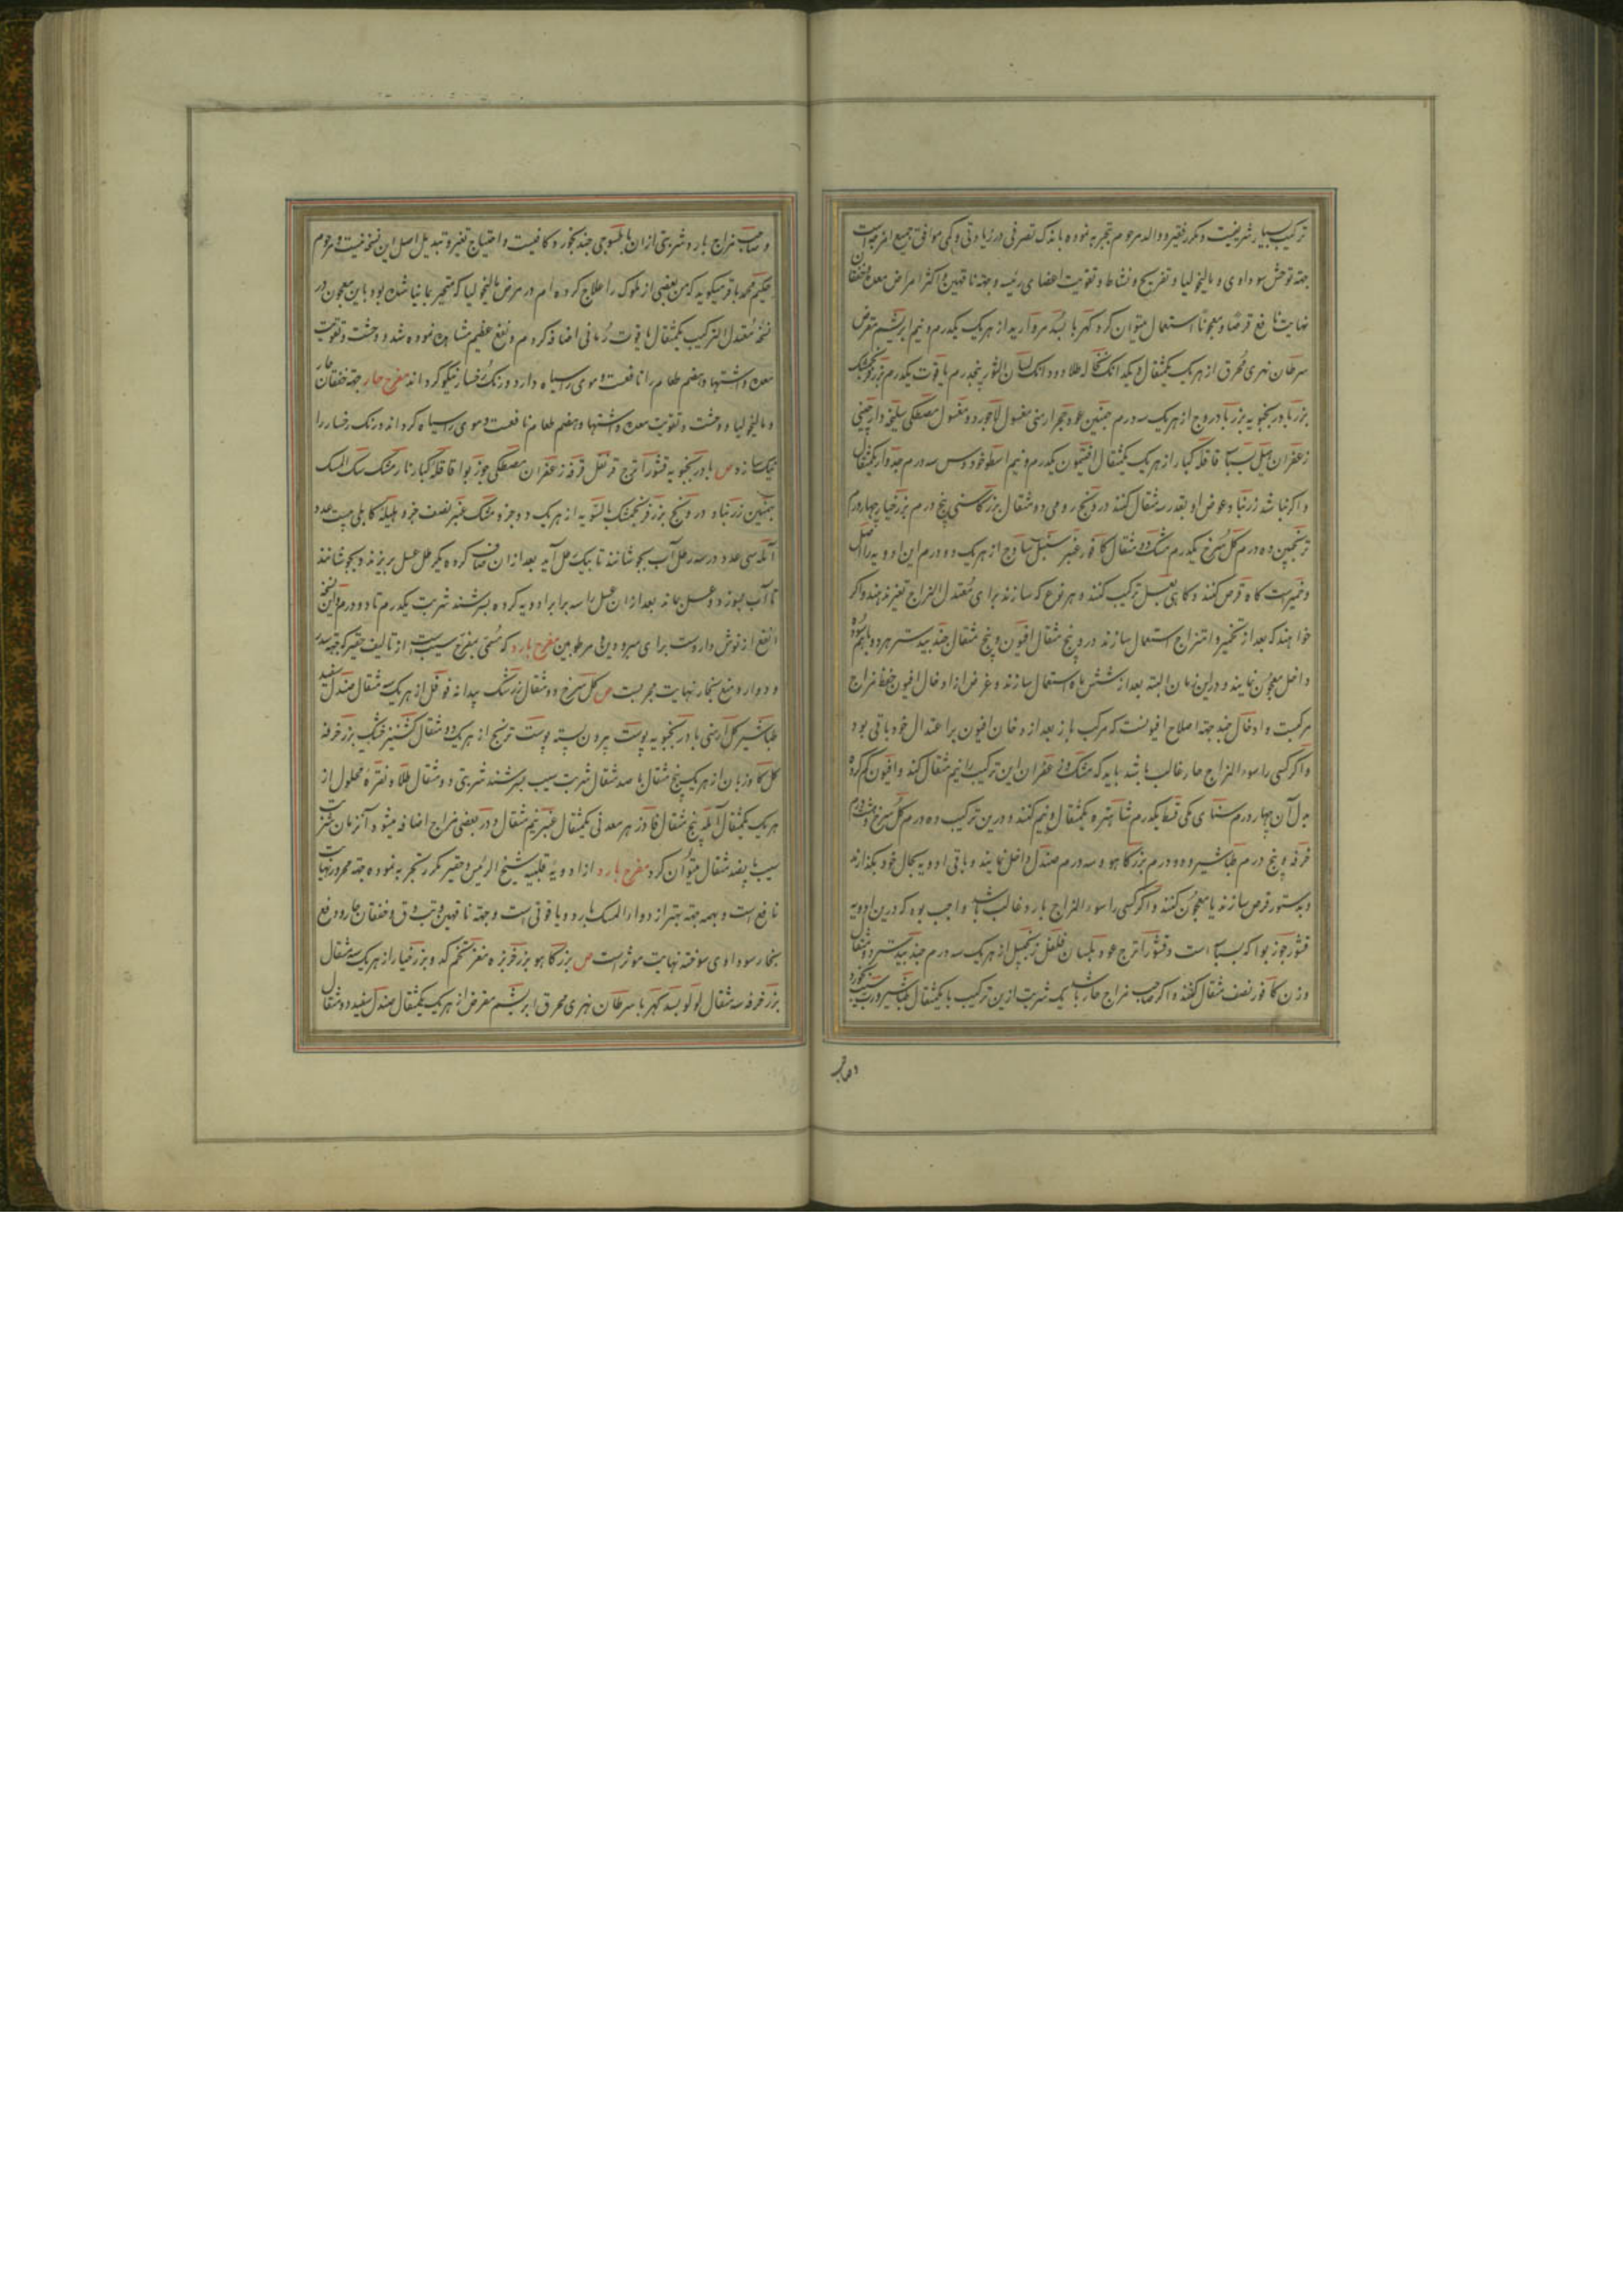 ترکیب بسیار شریفیست و مکرر فقیر و والد مرحوم تجربه نموده باندک تصرفی در زیادتی و کمی موافق جمیع امزجه است
جهته توحش سوداوی و مالیخولیا و تفریح و نشاط و تقویت اعضای رئیسه و جهته ناقهین و اکثر امراض معده و خفقان
نهایت نافع قرصا و معجونا استعمال میتوان کرد کهربا بسد مروارید از هر یک یکدرم و نیم ابریشم مقرض
سرطان نهری محرق از هر یک یکمثقال و یکدانک نخاله طلا دو دانک لسان الثور پنجدرم یاقوت یکدرم بزر فرنجمشک
بزر بادرنجبویه بزر بادروج از هر یک سه درم بهمنین عود حجر ارمنی مغسول لاجورد مغسول مصطکی سلیخه دارچینی
زعفران هیل بسباسه قاقله کبار از هر یک یکمثقال افتیمون یکدرم و نیم اسطوخودوس سه درم جدوار یکمثقال
و اگر نباشد زرنباد عوض او بقدر سه مثقال کنند درونج رومی دو مثقال بزر کاسنی پنج درم بزر خیار چهار درم
ترنجبین ده درم گل سرخ یکدرم مشک دو مثقال کافور عنبر سنبل ساذج از هر یک دو درم این ادویه را اصل
و خمیر است گاه قرص کنند و گاهی بعسل ترکیب کنند و هر نوع که سازند برای معتدل المزاج تغیر ندهند و اگر
خواهند که بعد از تخمیر و امتزاج استعمال سازند درو پنج مثقال افیون و پنج مثقال جندبیدستر هر دو باهم سوده
داخل معجون نمایند و در این زمان البته بعد از شش ماه استعمال سازند و غرض از ادخال افیون حفظ مزاج
مرکبست و ادخال جند جهته اصلاح افیونست که مرکب باز بعد از دخان افیون بر اعتدال خود باقی بود
و اگر کسی را سوء المزاج حار غالب باشد باید که مشک و زعفران این ترکیب را نیم مثقال کند و افیون کم کرده
بدل آن چهار درم سنای مکی قسط یکدرم شاهتره یکمثقال و نیم کنند و درین ترکیب ده درم گل سرخ و هشت درم
خرفه و پنج درم طباشیر و دو درم بزر کاهو و سه درم صندل داخل نمایند و باقی ادویه بحال خود بگذارند
و بدستور قرص سازند یا معجون کنند و اگر کسی را سوء المزاج بارد غالب باشد واجب بود که درین ادویه
قشور جوز بوا که بسباسه است و قشور اترج عود بلسان فلفل زنجبیل از هر یک سه درم جندبیدستر دو مثقال
وزن کافور نصف مثقال کنند و اگر صاحب مزاج حار باشد یک شربت ازین ترکیب با یکمثقال طباشیر و رب سیب بخورد
و صاحب
و صاحب مزاج بارد شربتی از ان با طسوجی جند بخورد کافیست و احتیاج تغیر و تبدیل اصل این نسخه نیست و مرحوم
حکیم محمد باقر میگوید که من بعضی از ملوک را علاج کرده ام در مرض مالیخولیا که منجر بمانیا شده بود باین معجون در
نسخه معتدل الترکیب یکمثقال یاقوت رمانی اضافه کردم و نفع عظیم مشاهده نموده شد و وحشت و تقویت
معده و اشتها و هضم طعام را نافعست و موی را سیاه دارد و رنک رخسار نیکو گرداند مفرح حار جهته خفقان حار
و مالیخولیا و وحشت و تقویت معده و اشتها و هضم طعام نافعست و موی را سیاه گرداند و رنک رخسار را
نیک سازد ص بادرنجبویه قشور اترج قرنفل قرفه زعفران مصطکی جوز بوا قاقله کبار نارمشک سک المسک
بهمنین زرنباد درونج بزر فرنجمشک بالسویه از هر یک دو جزو مشک عنبر نصف جزو هلیله کابلی بیست عدد
آمله سی عدد در سه رطل آب بجوشانند تا بیک رطل آید بعد از ان صاف کرده یکرطل عسل بریزند و بجوشانند
تا آب بسوزد و عسل بماند بعد از ان عسل را سه برابر ادویه کرده بسرشند شربت یکدرم تا دو درم و این نسخه
انفع از نوش داروست برای مبرودین و مرطوبین مفرح بارد که مسمی بمفرح سیب است از تالیف حقیر که جهته سدر
و دوار و منع بخار نهایت مجربست ص گل سرخ دو مثقال زرشک بیدانه فوفل از هر یک سه مثقال صندل سفید
طباشیر گل ارمنی بادرنجبویه پوست بیرون پسته پوست ترنج از هر یک دو مثقال کشنیز خشک بزر خرفه
گل گاوزبان از هر یک پنج مثقال با صد مثقال شربت سیب بسرشند شربتی دو مثقال طلا و نقره محلول از
هر یک یکمثقال آمله پنج مثقال فادزهر معدنی یکمثقال عنبر نیم مثقال و در بعضی مزاج اضافه میشود آنزمان شربت
سیب پانصد مثقال میتوان کرد مفرح بارد از ادویه قلبیه شیخ الرئیس و حقیر مکرر تجربه نموده جهته محرورین نهایت
نافع است و بهمه جهته بهتر از دواء المسک بارد و یاقوتی است و جهته ناقهین و تب دق و خفقان حار و رفع
بخار سوداوی سوخته نهایت موثر است ص بزر کاهو بزر خربزه مغز تخم کدو بزر خیار از هر یک سه مثقال
بزر خرفه سه مثقال لولو بسد کهربا سرطان نهری محرق ابریشم مقرض از هر یک یکمثقال صندل سفید دو مثقال